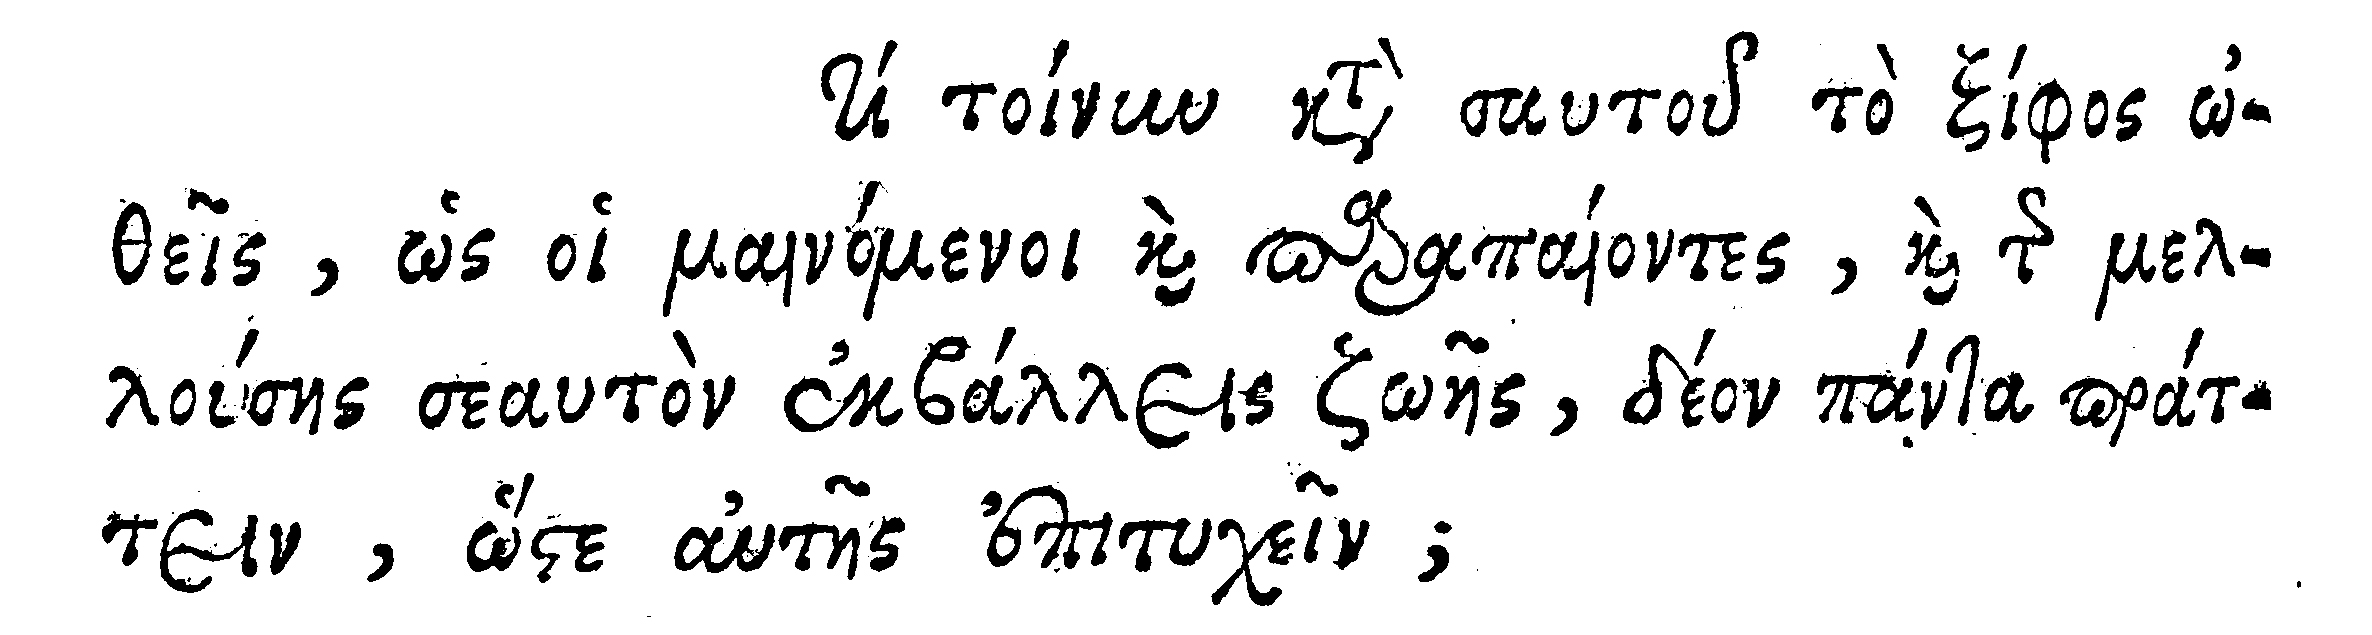 Τί τοίνυν κατὰ σαυτοῦ τὸ ξίφος ὠ-
θεῖς, ὡς οἱ μαινόμενοι καὶ παραπαίοντες, καὶ τῆς μελ-
λούσης σεαυτὸν ἐκβάλλεις ζωῆς, δέον πάντα πράτ-
τειν, ὥστε αὐτῆς ἐπιτυχεῖν;